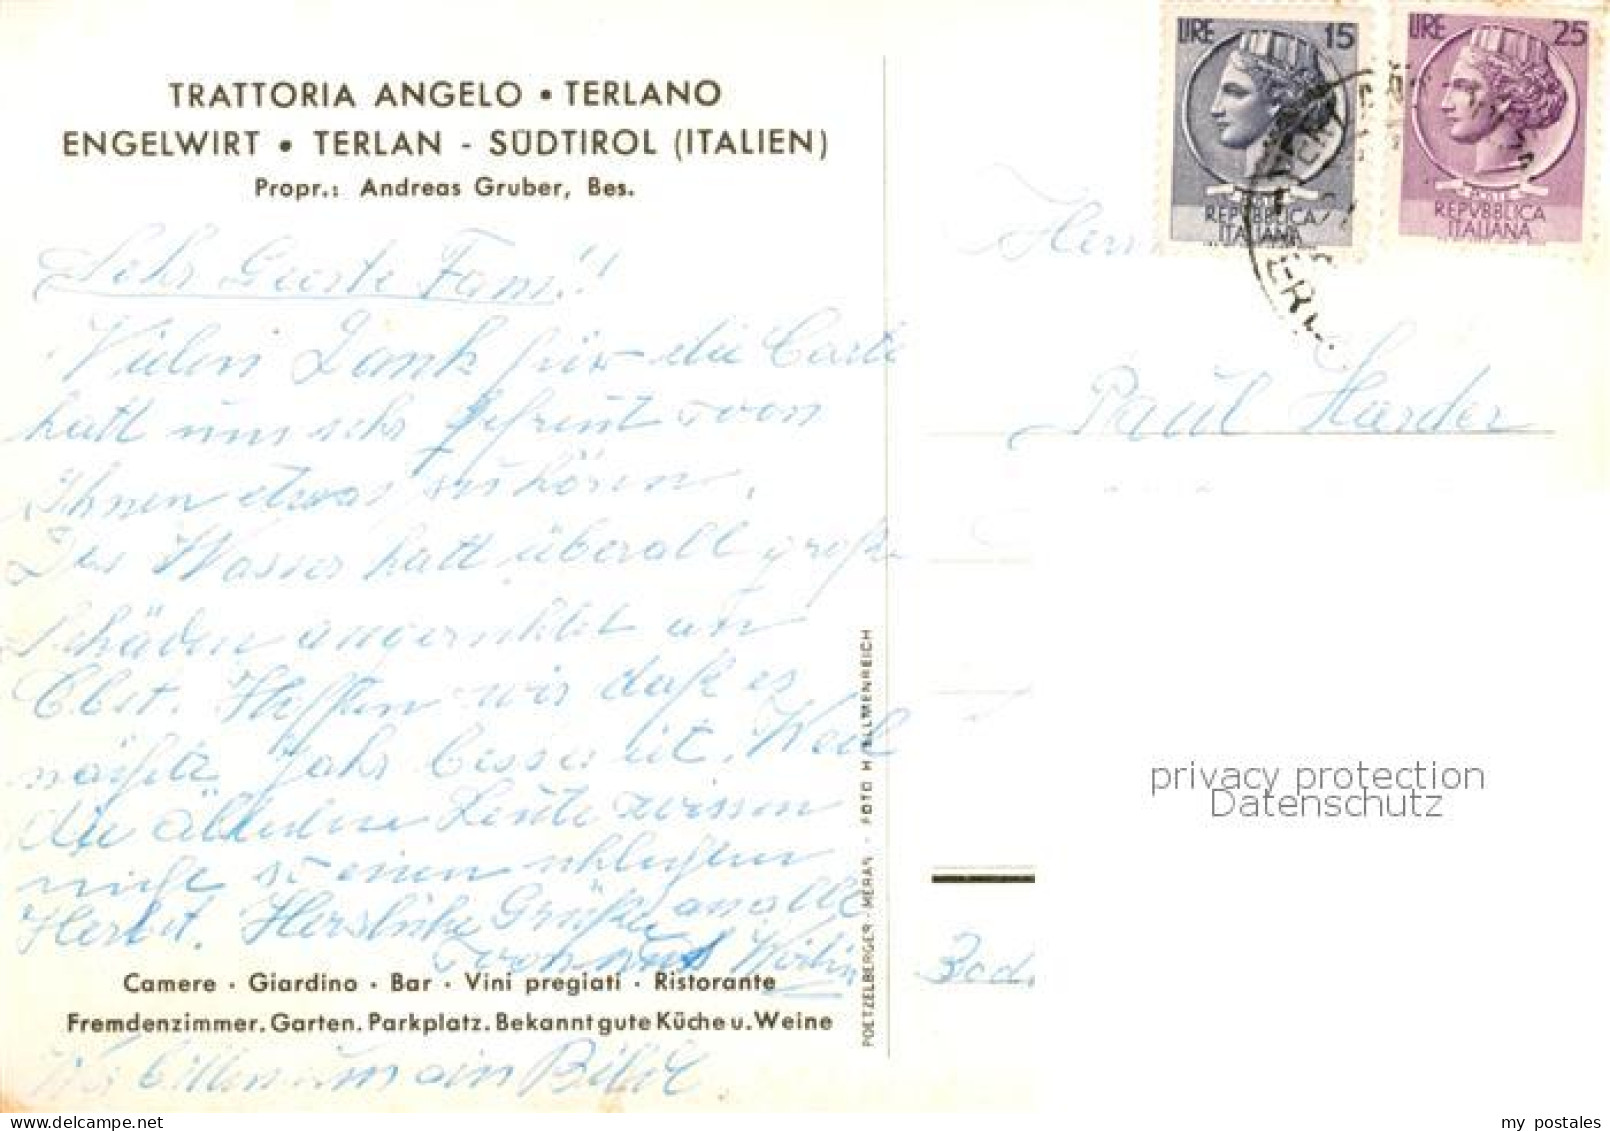 TRATTORIA ANGELO • TERLANO
ENGELWIRT • TERLAN - SÜDTIROL (ITALIEN)
Propr.: Andreas Gruber, Bes.
Sehr Geerte Fam!!
Vielen Dank für die Carte
hatt uns sehr gefreut von
Ihnen etwas zu hören.
Das Wasser hatt überall große
Schäden angerichtet am
Obst. Hoffen wir daß es
nächste Jahr besser ist. Weil
die älteren Leute wissen
nicht so einen schlechten
Herbst. Herzliche Grüße an alle
von uns Wirtin
Camere · Giardino · Bar · Vini pregiati · Ristorante
Fremdenzimmer. Garten. Parkplatz. Bekannt gute Küche u. Weine
Wir bitten um ein
POETZELBERGER - MERAN - FOTO H. ELLMENREICH
LIRE 15
REPVBBLICA
ITALIANA
LIRE 25
POSTE
REPVBBLICA
ITALIANA
Herr
Paul Harder
privacy protection
Datenschutz
Bad.
my postales